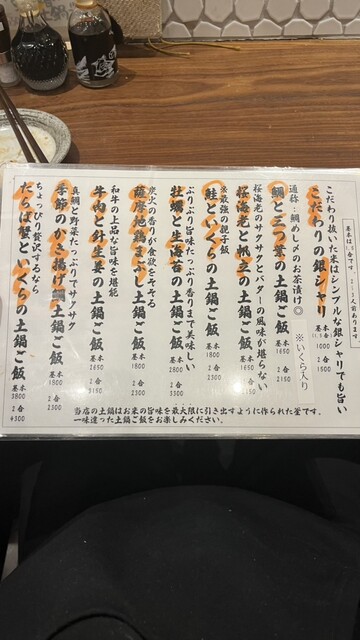 こだわり抜いた米はシンプルな銀シャリでも旨い
こだわりの銀シャリ
1000
1500
通称：鯛めし〆のお茶漬け◎
鯛と三つ葉の土鍋ご飯
基本
1650
2合
2150
※いくら入り
桜海老のサクサクとバターの風味が堪らない
桜海老と帆立の土鍋ご飯
基本
1650
2合
2150
※最強の親子飯
鮭といくらの土鍋ご飯
基本
1800
2合
2300
ぷりぷり旨味たっぷり香りまで美味しい
牡蠣と生海苔の土鍋ご飯
基本
2800
2合
3300
炭火の香りが食欲をそそる
薩摩地鶏まぶし土鍋ご飯
基本
1800
2合
2300
和牛の上品な旨味を堪能
牛肉と針生姜の土鍋ご飯
基本
2合
3100
真鯛と野菜たっぷりでサクサク
季節のかき揚げ鯛土鍋ご飯
基本
1800
2合
2300
ちょっぴり贅沢するなら
たらば蟹といくらの土鍋ご飯
基本
3800
2合
4300
当店の土鍋はお米の旨味を最大限に引き出すように作られた釜です。
一味違った土鍋ご飯をお楽しみください。